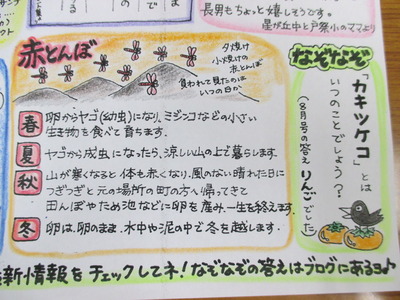 長男もちょっと嬉しそうです。
星が丘中と戸祭小のママより
赤とんぼ
夕焼け
小焼けの
赤とんぼ
負われて見たのは
いつの日か
春 卵からヤゴ(幼虫)になり、ミジンコなどの小さい
生き物を食べて育ちます。
夏 ヤゴから成虫になったら、涼しい山の上で暮らします。
秋 山が寒くなると体も赤くなり、風のない晴れた日に
つぎつぎと元の場所の町の方へ帰ってきて
田んぼやため池などに卵を産み、一生を終えます。
冬 卵は、卵のまま、水中や泥の中で冬を越します。
なぞなぞ
「カキツケコ」とは
いつのことでしょう?
(8月号の答え りんごでした)
新情報をチェックしてネ!なぞなぞの答えはブログにあるヨ♪